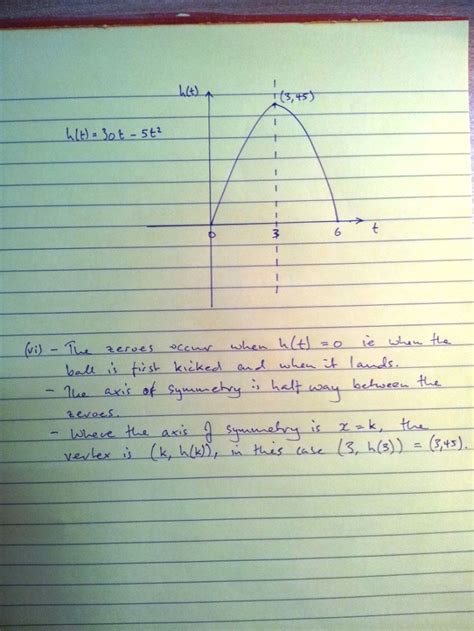 h(t)
(3,45)
h(t) = 30t - 5t²
0 3 6 t
(vi) - The zeroes occur when h(t) = 0 ie when the
ball is first kicked and when it lands.
- The axis of symmetry is half way between the
zeroes.
- Where the axis of symmetry is x = k, the
vertex is (k, h(k)), in this case (3, h(3)) = (3,45).